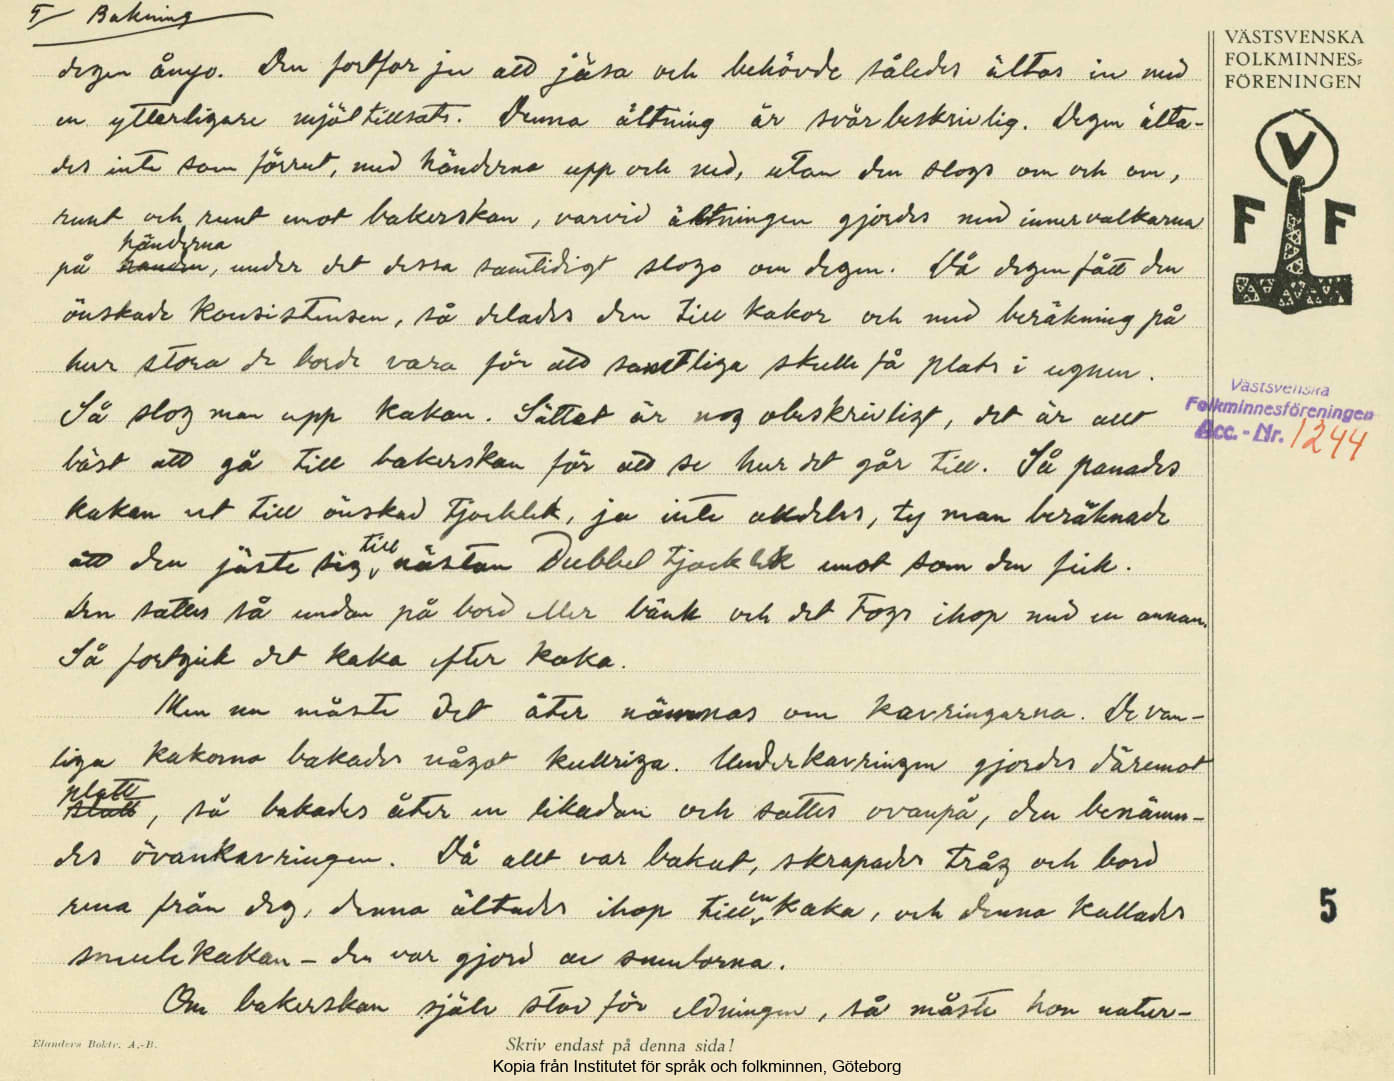 5 Bakning
degen ånyo. Den fortfor ju att jäsa och behövde således ältas in med
en ytterligare mjöltillsats. Denna ältning är svårbeskrivlig. Degen älta-
des inte som förrut, med händerna upp och ned, utan den slogs om och om,
runt och runt emot bakerskan, varvid ältningen gjordes med innervalkarna
på händerna, under det dessa samtidigt slogo om degen. Då degen fått den
önskade konsistensen, så delades den till kakor och med beräkning på
hur stora de borde vara för att samtliga skulle få plats i ugnen.
Så slog man upp kakan. Sättet är nog obeskrivligt, det är allt
bäst att gå till bakerskan för att se hur det går till. Så panades
kakan ut till önskad tjocklek, ja inte alldeles, ty man beräknade
att den jäste sig till nästan dubbel tjocklek emot som den fick.
Den sattes så undan på bord eller bänk och det togs ihop med en annan.
Så fortgick det kaka efter kaka.
Men nu måste det åter nämnas om kavringarna. De van-
liga kakorna bakades något kullriga. Underkavringen gjordes däremot
platt, så bakades åter en likadan och sattes ovanpå, den benämn-
des övankavringen. Då allt var bakat, skrapades tråg och bord
rena från deg, denna ältades ihop till en kaka, och denna kallades
smulekakan – den var gjord av smulorna.
Om bakerskan själv stod för eldningen, så måste hon natur-
VÄSTSVENSKA
FOLKMINNES-
FÖRENINGEN
V
F F
Västsvenska
Folkminnesföreningen
Acc. - Nr. 1244
5
Elanders Boktr. A.-B.
Skriv endast på denna sida!
Kopia från Institutet för språk och folkminnen, Göteborg